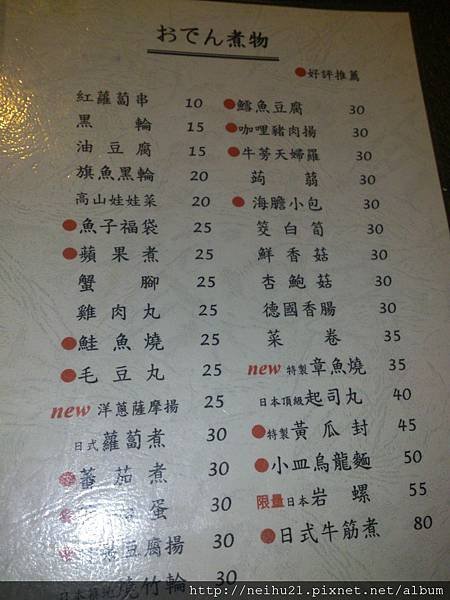 おでん煮物
好評推薦
紅蘿蔔串 10
黑輪 15
油豆腐 15
旗魚黑輪 20
高山娃娃菜 20
魚子福袋 25
蘋果煮 25
蟹腳 25
雞肉丸 25
鮭魚燒 25
毛豆丸 25
new 洋蔥薩摩揚 25
日式蘿蔔煮 30
蕃茄煮 30
蛋 30
豆腐揚 30
日本 燒竹輪 30
鱈魚豆腐 30
咖哩豬肉揚 30
牛蒡天婦羅 30
蒟蒻 30
海膽小包 30
筊白筍 30
鮮香菇 30
杏鮑菇 30
德國香腸 30
菜卷 35
new 特製章魚燒 35
日本頂級起司丸 40
特製黃瓜封 45
小皿烏龍麵 50
限量日本岩螺 55
日式牛筋煮 80
http://neihu21.pixnet.net/album